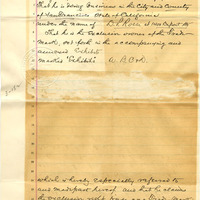 that he is doing business in the City and County
of San Francisco State of California
under the name of
That he is the exclusive owner of the Trade-
mark, set forth in the accompanying and
annexed Exhibits
marked "Exhibits A B C & D.
which is hereby especially referred to
and made part hereof and that he claims
the exclusive right